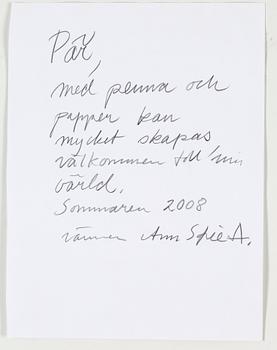 Pär,
med penna och
papper kan
mycket skapas
välkommen till min
värld.
Sommaren 2008
vännen Ann Sofie A.